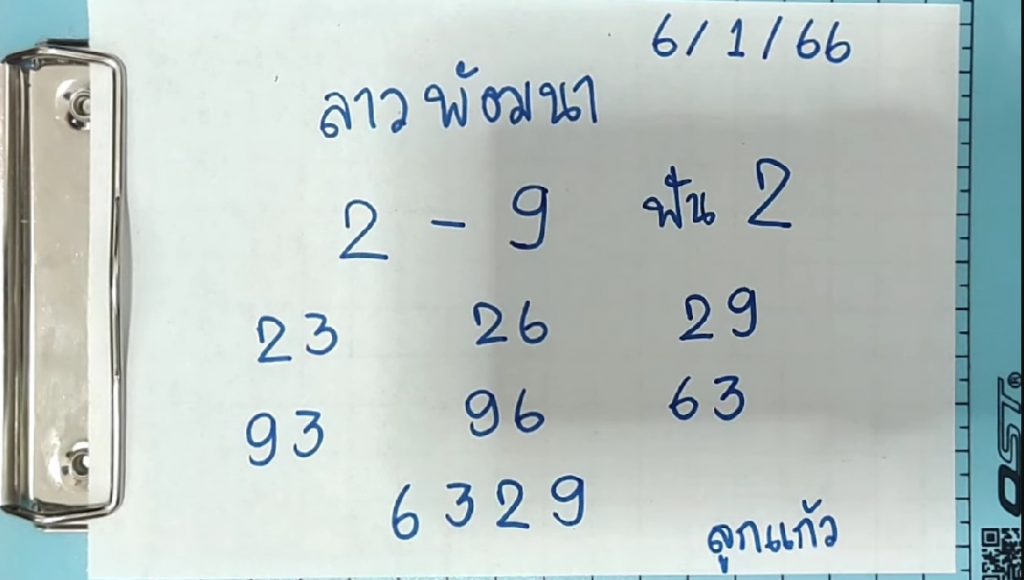 6/1/66
ลาวพัฒนา
2 - 9 ฟัน 2
23 26 29
93 96 63
6329
ลูกแก้ว
OST®